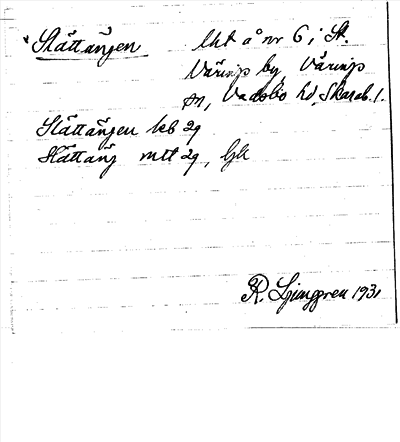 *Slättängen lht å nr 6 i St.
Väringe by, Väringe
sn, Vadsbo hd, Skarab. l.
Slättängen leb 29
Slättäng mtt 29, Gk
R. Ljunggren 1931